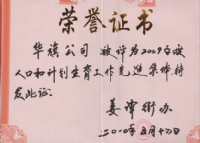 荣誉证书
华旗公司 被评为2009年度
人口和计划生育工作先进集体特
发此证
姜谭街办
二〇一〇年三月十六日